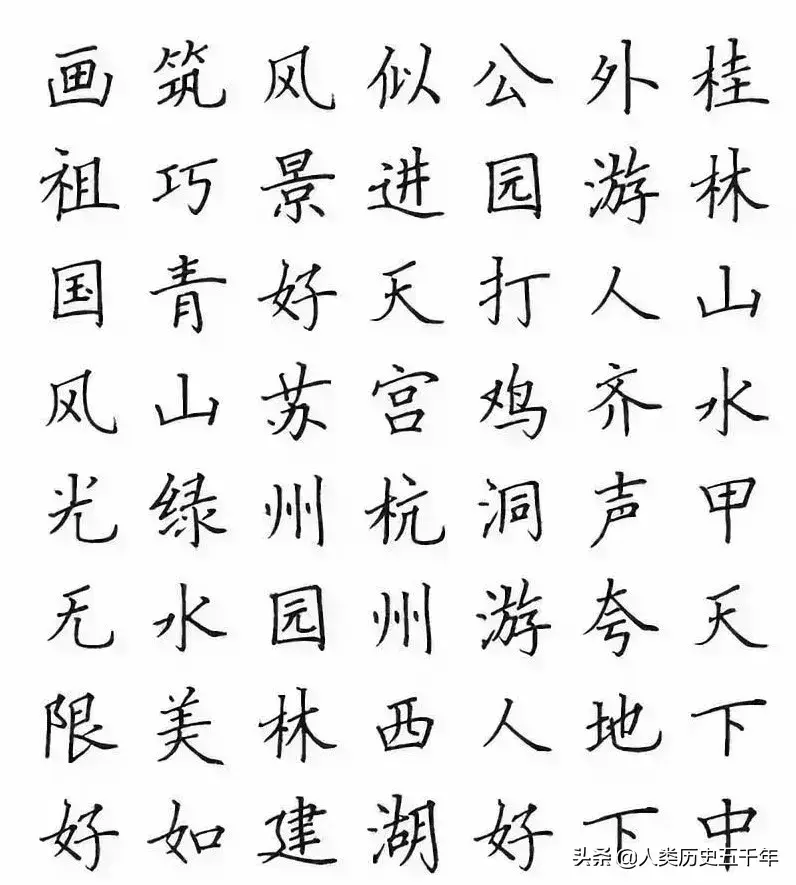 桂林山水甲天下中
外游人齐声夸地下
公园打鸡洞游人好
似进天宫杭州西湖
风景好苏州园林建
筑巧青山绿水美如
画祖国风光无限好
头条 @人类历史五千年